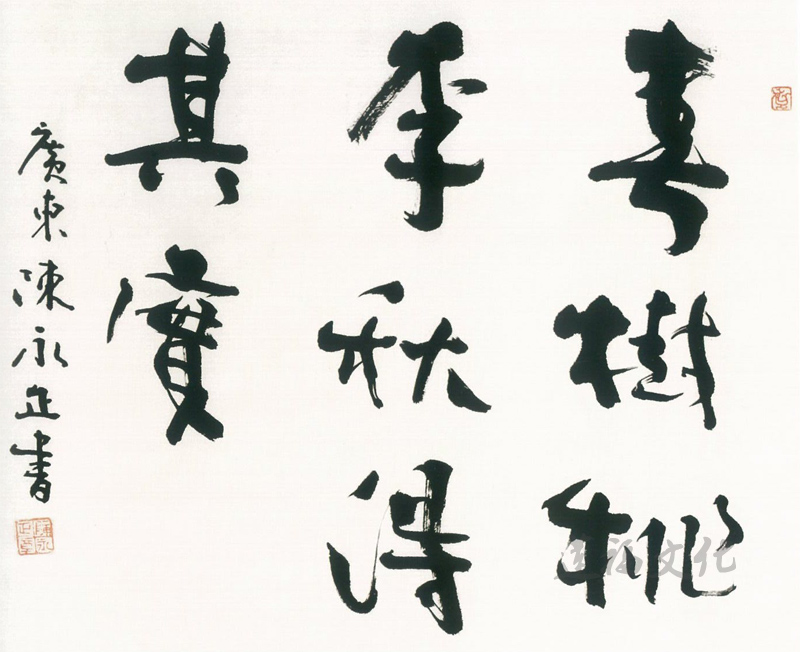 春樹桃
李秋得
其實
廣東陳永正書
文化